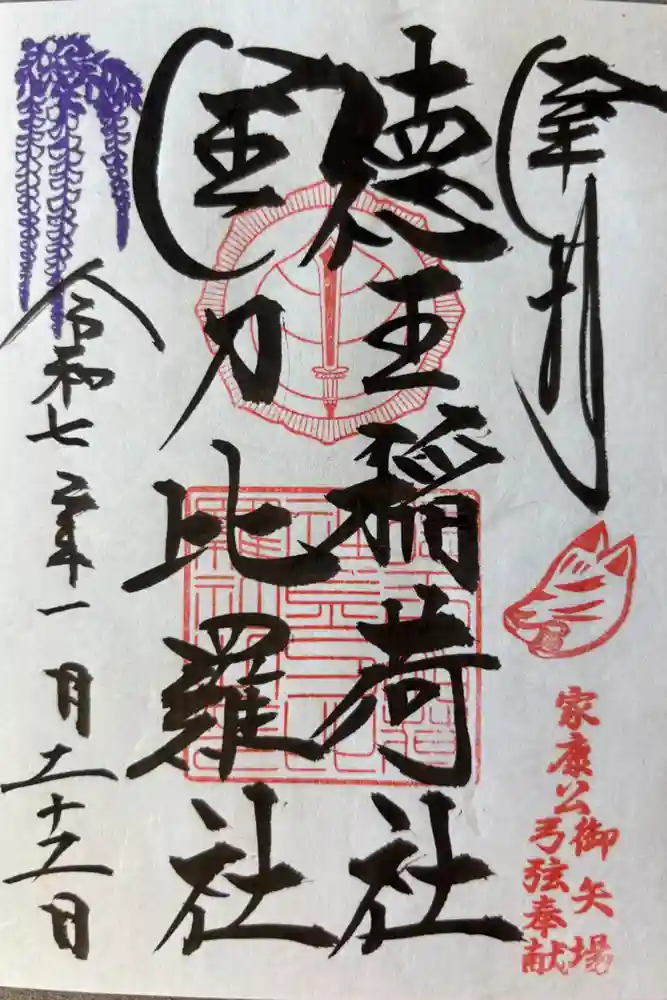 奉拝
家康公御矢場
弓弦奉献
徳王稲荷社
金刀比羅社
令和七年十一月二十二日